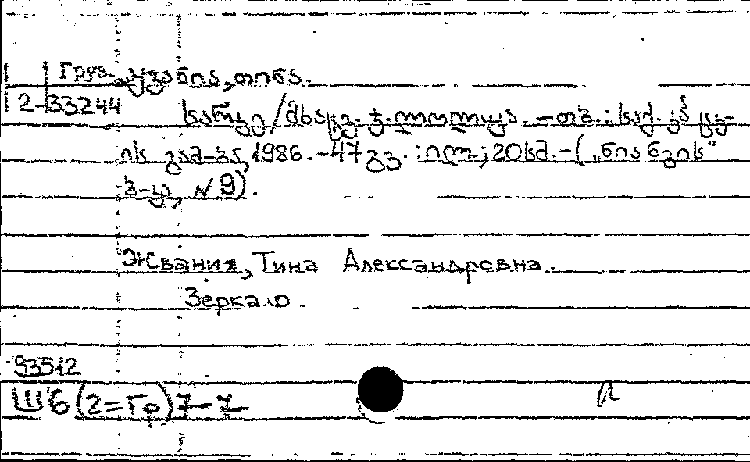 Груз. ჟვანია, თინა.
2-33244
სარკე / მხატვ. ზ. ლოლუა. - თბ.: საქ. კპ ცკ-
ის გამ-ბა, 1986. - 47 გვ. : ილ.; 20 სმ. - ( „ნიანგის"
ბ-კა, № 9).
Жвания, Тина Александровна.
Зеркало.
93512
Ш6(2=Гр)7-7